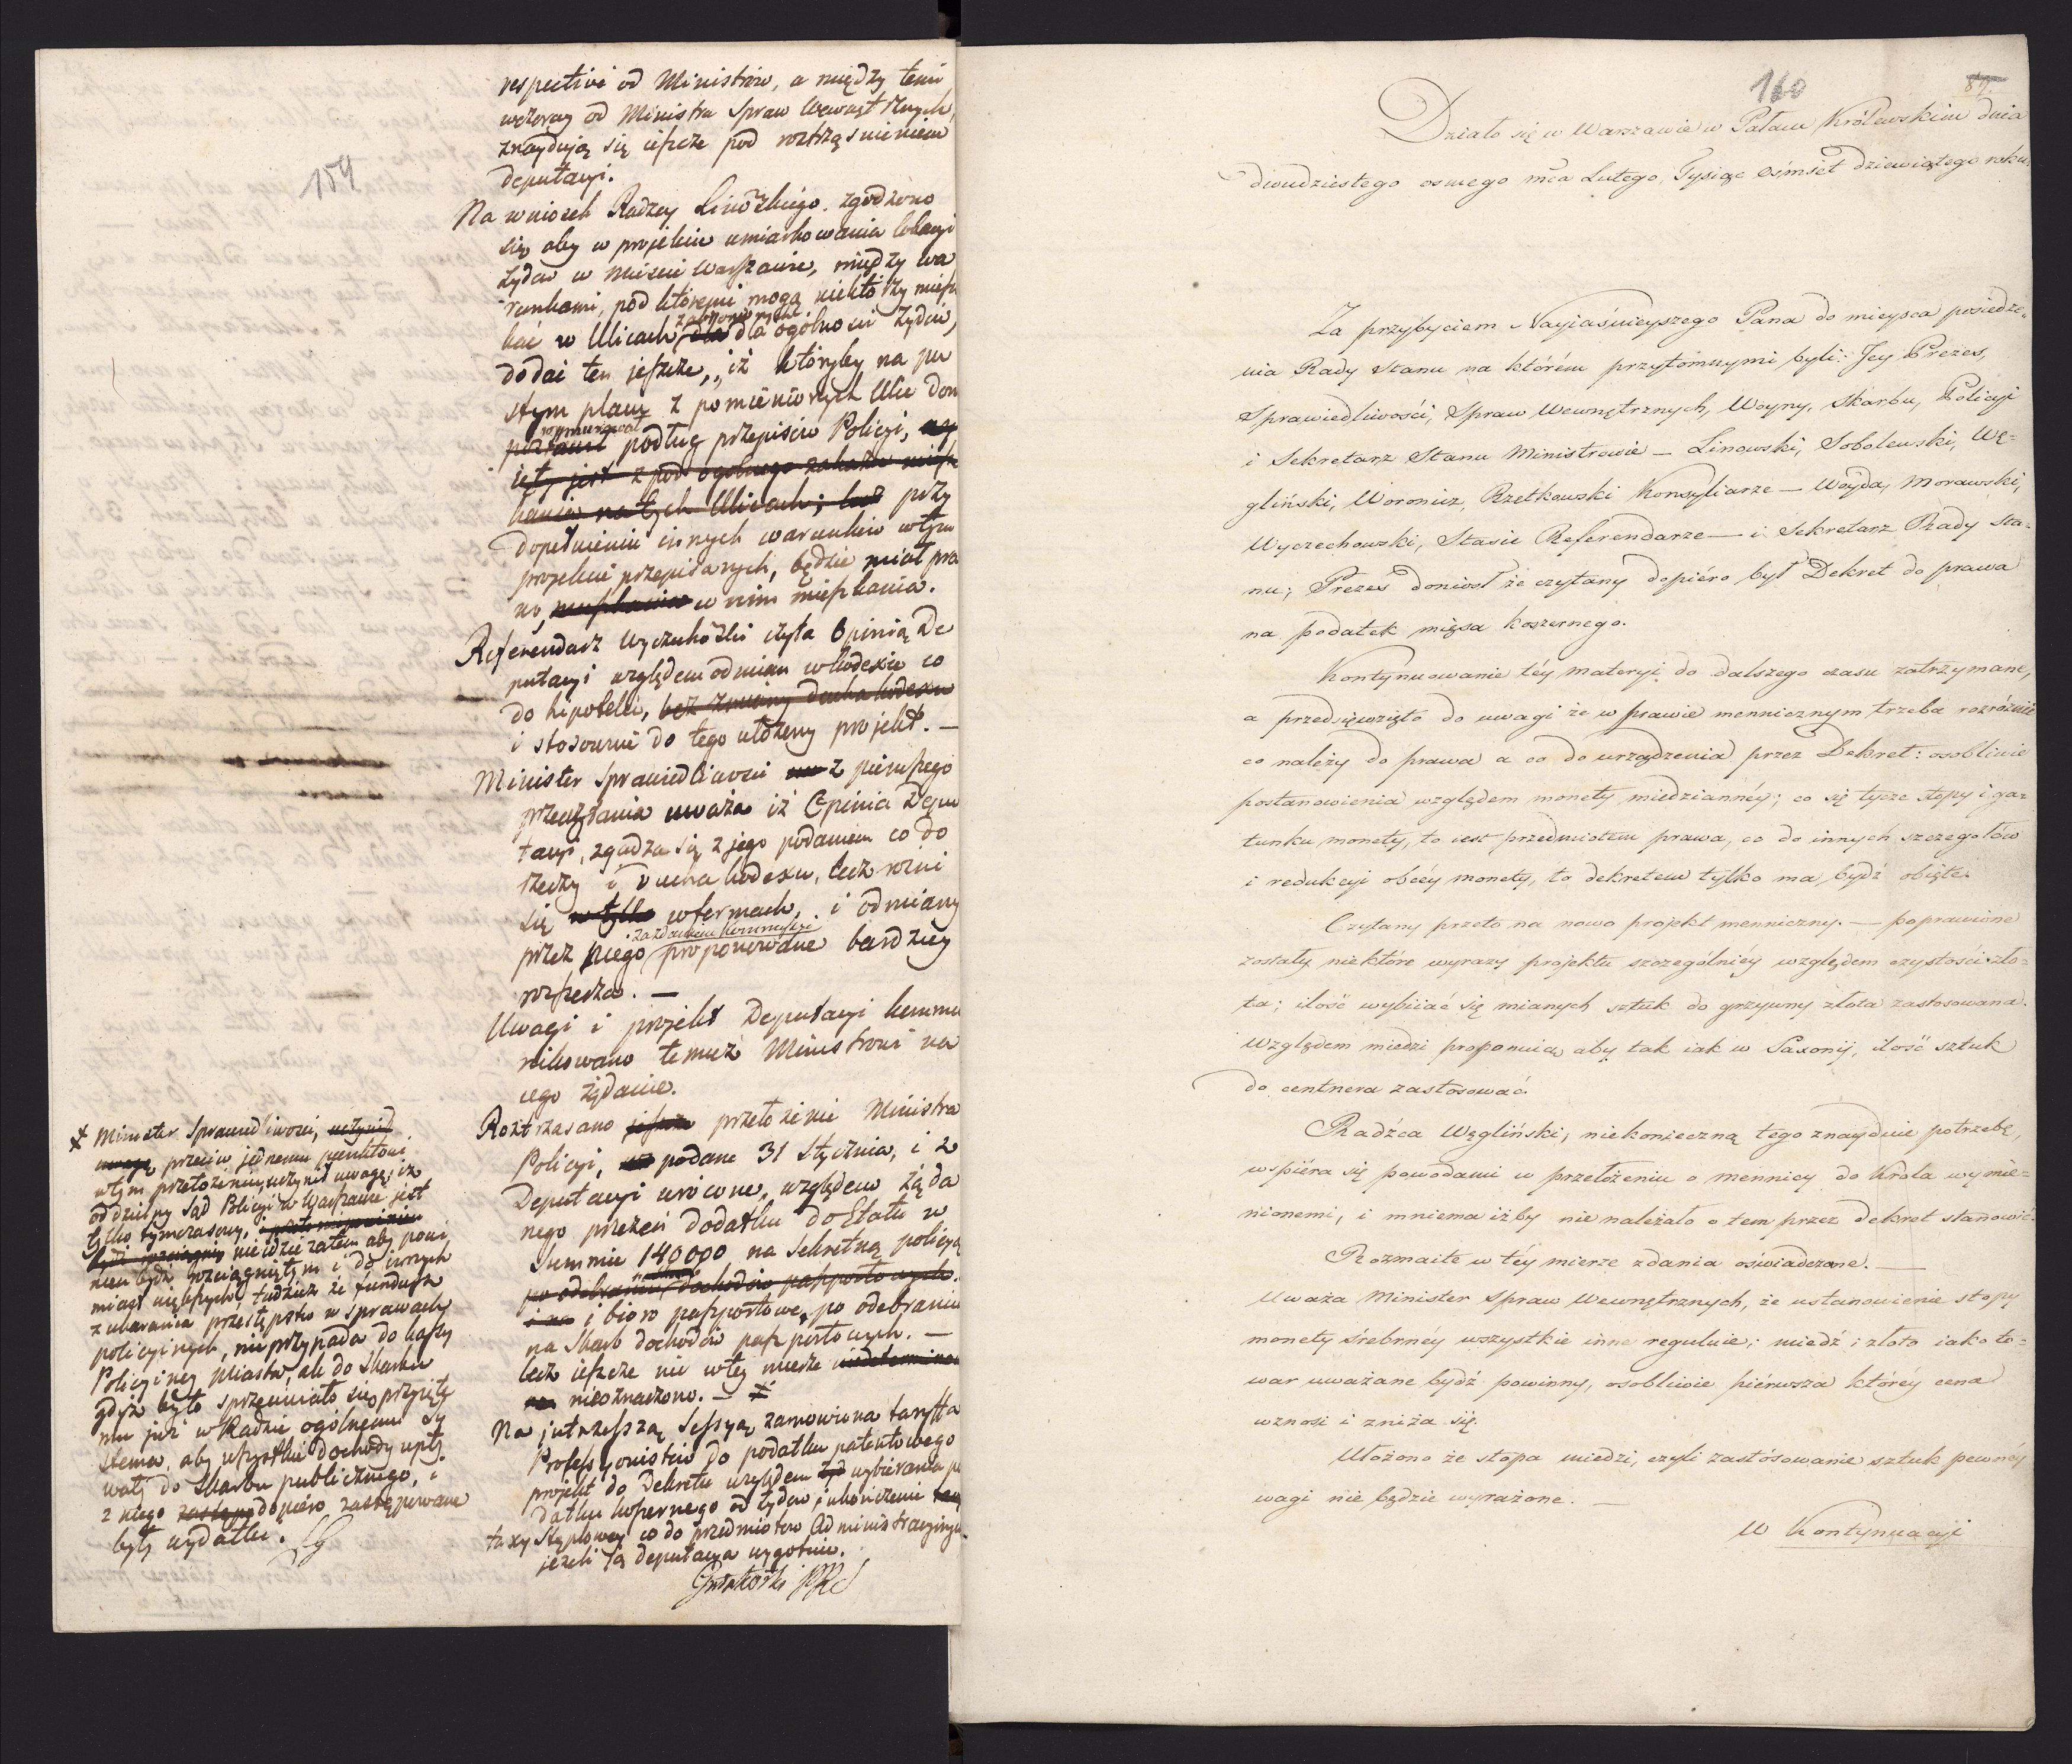 159
respective od Ministrów, a między temi
wczoray od Ministra Spraw Wewnętrznych,
znayduią się ieszcze pod roztrząśnieniem
deputacyi.
Na wniosek Radzcy Linowskiego zgodzono
się, aby w projekcie umiarkowania lokacyi
Żydów w mieście Warszawie, między wa
runkami, pod któremi mogą niektórzy miesz
kać w Ulicach zabronionych dla ogólności Żydów,
dodać ten jeszcze, „iż któryby na pu
stym placu z pomienionych Ulic dom
wymurował podług przepisów Policyi,
ięty jest z pod ogólnego zakazu miesz
kania na tych Ulicach; lecz przy
dopełnieniu innych warunków w tym
projekcie przepisanych, będzie miał pra
wo, mieszkania w nim mieszkania.
Referendarz Wyczechowski czyta Opinią De
putacyi względem odmian w kodexie co
do hipoteki, bez zmiany ducha kodexu
i stosownie do tego ułożony projekt. —
Minister Sprawiedliwości z pierwszego
przeczytania uważa iż Opinia Depu
tacyi, zgadza się z jego podaniem co do
rzeczy i ducha kodexu, lecz rożni
się w tylko w formach, i odmiany
przez niego za zdaniem Kommissyi proponowane bardziey
rozszerza. —
Uwagi i projekt Deputacyi kommu
nikowano temuż Ministrowi na
iego żądanie.
Roztrząsano jeszcze przełożenie Ministra
Policyi, podane 31 Stycznia, i z
Deputacyi wrócone, względem żąda
nego przezeń dodatku do Etatu w
Summie 140000 na Sekretną policyą
po odebraniu dochodów paszportowych.
i na i bioro paszportowe, po odebraniu
na Skarb dochodów paszportowych. —
lecz ieszcze nic w tey mierze niedetermino
nieoznaczono. — #
Na jutrzeyszą Sessyą zamówiona taryffa
Professyonistów do podatku patentowego
projekt do Dekretu względem wybierania po
datku koszernego od Żydów, i ukończenie
taxy Stęplowey co do przedmiotów Administracyinych
jeżeli ią deputacya wygotuie.
# Minister Sprawiedliwości, uczynił
uwagę przeciw jednemu punktowi
w tym przełożeniu, uczynił uwagę, iż
oddzielny Sąd Policyi w Warszawie jest
tylko tymczasowy,
nie idzie zatem aby powi
nien bydź rozciągniętym i do innych
miast większych, tudzież że fundusz
z ukarania przestępstw w sprawach
policyinych, nie przypada do kassy
Policyiney Miasta, ale do Skarbu
gdyż było sprzeciwiało się przyięte
mu już w Radzie ogólnemu Sy
stema, aby wszystkie dochody wpły
wały do Skarbu publicznego, i
z niego dopiero zastępowane
były wydatki.
160
87.
Działo się w Warszawie w Pałacu Królewskim dnia
dwudziestego osmego mca Lutego, Tysiąc Ośmset dziewiątego roku.
Za przybyciem Nayiaśnieyszego Pana do mieysca posiedze„
nia Rady Stanu na którém przytomnymi byli: Jey Prezes,
Sprawiedliwości, Spraw Wewnętrznych, Woyny, Skarbu, Policyi
i Sekretarz Stanu Ministrowie — Linowski, Sobolewski, Wę=
gliński, Woronicz, Rzetkowski Konsyliarze — Woyda, Morawski,
Wyczechowski, Stasic Referendarze — i Sekretarz Rady Sta=
nu; Prezes doniosł że czytany dopiéro był Dekret do prawa
na podatek mięsa koszernego.
Kontynuowanie téy materyi do dalszego czasu zatrzymane,
a przedsięwzięto do uwagi że w prawie menniczném trzeba rozróżnić
co należy do prawa a co do urządzenia przez Dekret: osobliwie
postanowienia względem monety miedzianney; co się tycze stopy i ga=
tunku monety, to iest przedmiotem prawa, co do innych szczegołów
i redukcyi obcéy monety, to dekretem tylko ma bydź obięte.
Czytany przeto na nowo projekt menniczny. — poprawione
zostały niektóre wyrazy projektu szczególniéy względem czystości zło=
ta; ilość wybiiać się mianych sztuk do grzywny złota zastosowana.
Względem miedzi proponuią aby tak iak w Saxonij, ilość sztuk
do centnera zastosować.
Radźca Węgliński, niekonieczną tego znayduie potrzebę,
wspiéra się powodami w przełożeniu o mennicy do Króla wymie=
nionemi, i mniema iżby nie należało o tem przez dekret stanowić.
Rozmaite w téy mierze zdania oświadczone. —
Uważa Minister Spraw Wewnętrznych, że ustanowienie stopy
monety śrebrnéy wszystkie inne reguluie; miedź i złoto iako to=
war uważane bydź powinny, osobliwie piérwsza któréy cena
wznosi i zniża się.
Ułożono że stopa miedzi, czyli zastósowanie sztuk pewnéy
wagi nie będzie wyrażone. —
W Kontynuacyi